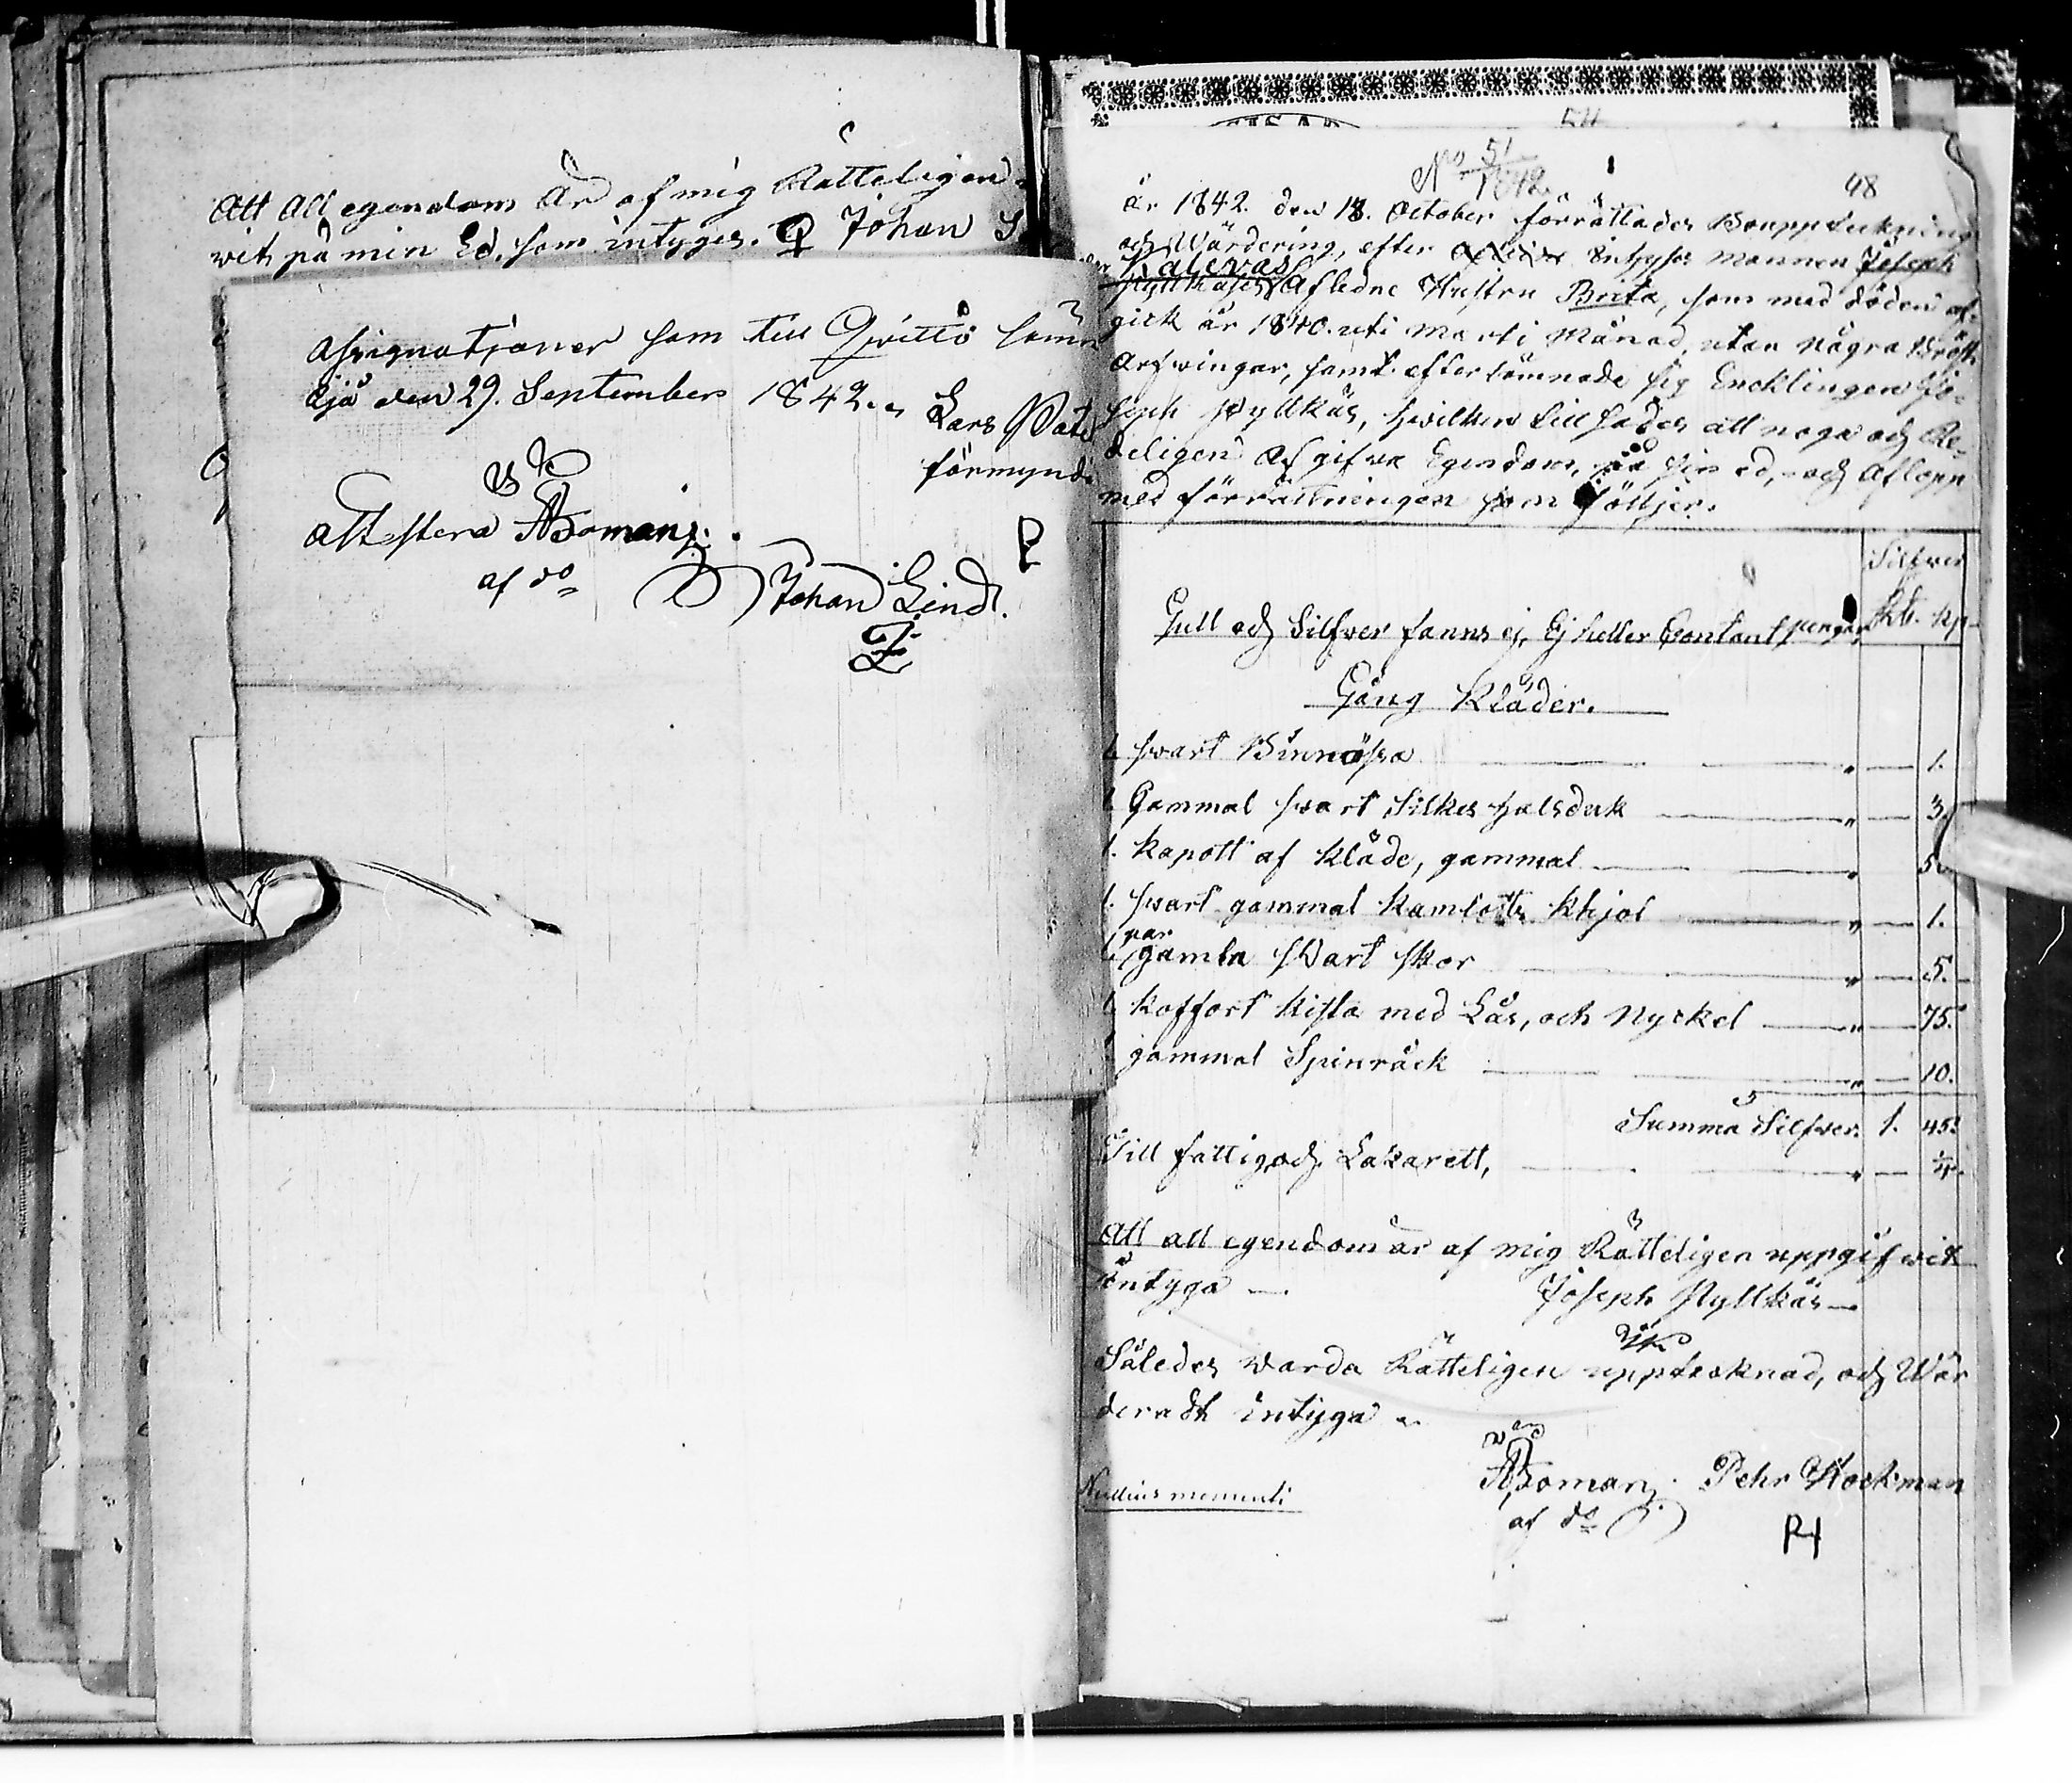 Att All egendom Är af mig Rätteligen
vit på min Ed. som intyges. Johan
Assignationer som till Qvitto
Ejä den 29. September 1842.
Lars
förmynd
Attestera ABoman
af do
Johan Lind
No 51
1842
48
År 1842. den 18. October förrättades Bouppteckning
och Wärdering, efter Inhyses mannen Joseph
Kalevas
Afledne Hustru Brita, som med döden af-
gick år 1840. uti Marti Månad, utan några Bröst
Arfwingar, samt efterlämnade sig Encklingen Jo-
seph Pyllkäs, hwilken tillsades att noga och Re-
deligen Afgifwa Egendom, på sin ed, och Aflopp
med förrättningen som följer.
Silfver
Rb. Kp
Gull och Silfver fanns ej, Ej heller Contant pengar
Gång Kläder.
1. swart " 1.
1. Gammal swart Silkes halsduk " 3.
1. Kapott af Kläde, gammal " 50
1. swart gammal Kamlotts Khjol " 1.
par
1. gamla swart skor " 5.
1. Koffort Kista med Lås, och Nyckel " 75.
1. gammal Spinråck " 10.
Summa Silfver. 1. 45.
Till fattig och Lazarett, "
Att all egendom är af mig Rätteligen uppgifwit
intyga — Joseph Pyllkäs —
Således warda Rätteligen upptecknad, och Wär
deradt intyga
ABoman. Pehr Stockman
af do
PH
Nullius momenti